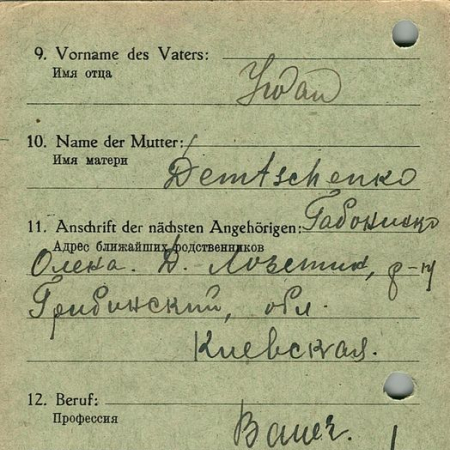 9. Vorname des Vaters:
Имя отца
Iwan
10. Name der Mutter:
Имя матери
Demtschenko
11. Anschrift der nächsten Angehörigen:
Адрес ближайших родственников
Олена. Д.
обл.
Киевская.
12. Beruf:
Профессия
Bauer.